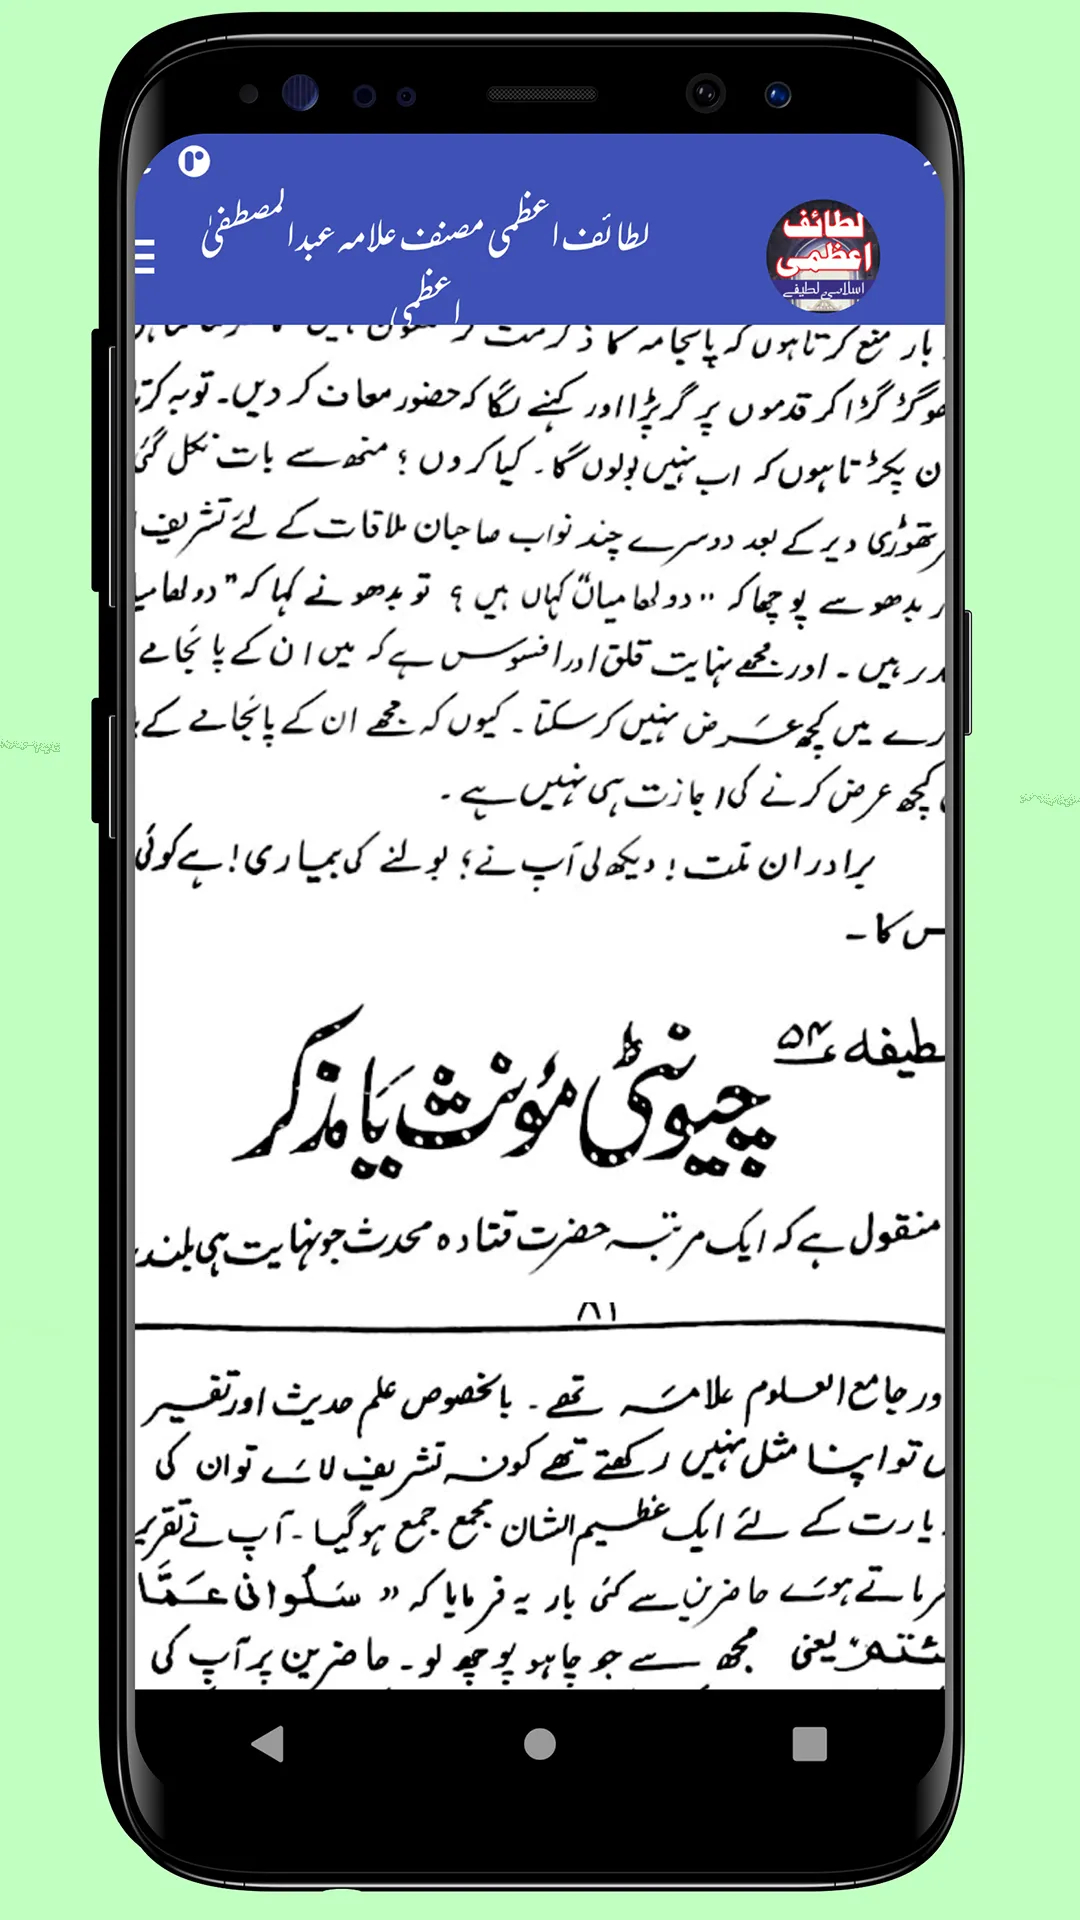 لطائف اعظمی مصنف علامہ عبدالمصطفیٰ
اعظمی
لطائف
اعظمی
اسلامی لطیفے
بار منع کرتا ہوں کہ پائجامہ کا ذکر مت کر
گڑ گڑا کر قدموں پر گر پڑا اور کہنے لگا کہ حضور معاف کر دیں۔ توبہ کرتا
ن پکڑتا ہوں کہ اب نہیں بولوں گا۔ کیا کروں؟ منھ سے بات نکل گئی
تھوڑی دیر کے بعد دوسرے چند نواب صاحبان ملاقات کے لئے تشریف
ر بدھو سے پوچھا کہ "دولھا میاں" کہاں ہیں؟ تو بدھو نے کہا کہ "دولھا میا
در ہیں۔ اور مجھے نہایت قلق اور افسوس ہے کہ میں ان کے پائجامے
رے میں کچھ عرض نہیں کر سکتا۔ کیوں کہ مجھے ان کے پائجامے کے با
کچھ عرض کرنے کی اجازت ہی نہیں ہے۔
برادران ملت! دیکھ لی آپ نے؟ بولنے کی بیماری! ہے کوئی
س کا۔
لطیفہ ۵۴
چیونٹی مؤنث یا مذکر
منقول ہے کہ ایک مرتبہ حضرت قتادہ محدث جو نہایت ہی بلند
۸۱
ور جامع العلوم علامہ تھے۔ بالخصوص علم حدیث اور تفسیر
ں تو اپنا مثل نہیں رکھتے تھے کوفہ تشریف لائے تو ان کی
یارت کے لئے ایک عظیم الشان مجمع جمع ہو گیا۔ آپ نے تقریر
رماتے ہوئے حاضرین سے کئی بار یہ فرمایا کہ "سَلُوانی عَمَّا
شئتم" یعنی مجھ سے جو چاہو پوچھ لو۔ حاضرین پر آپ کی